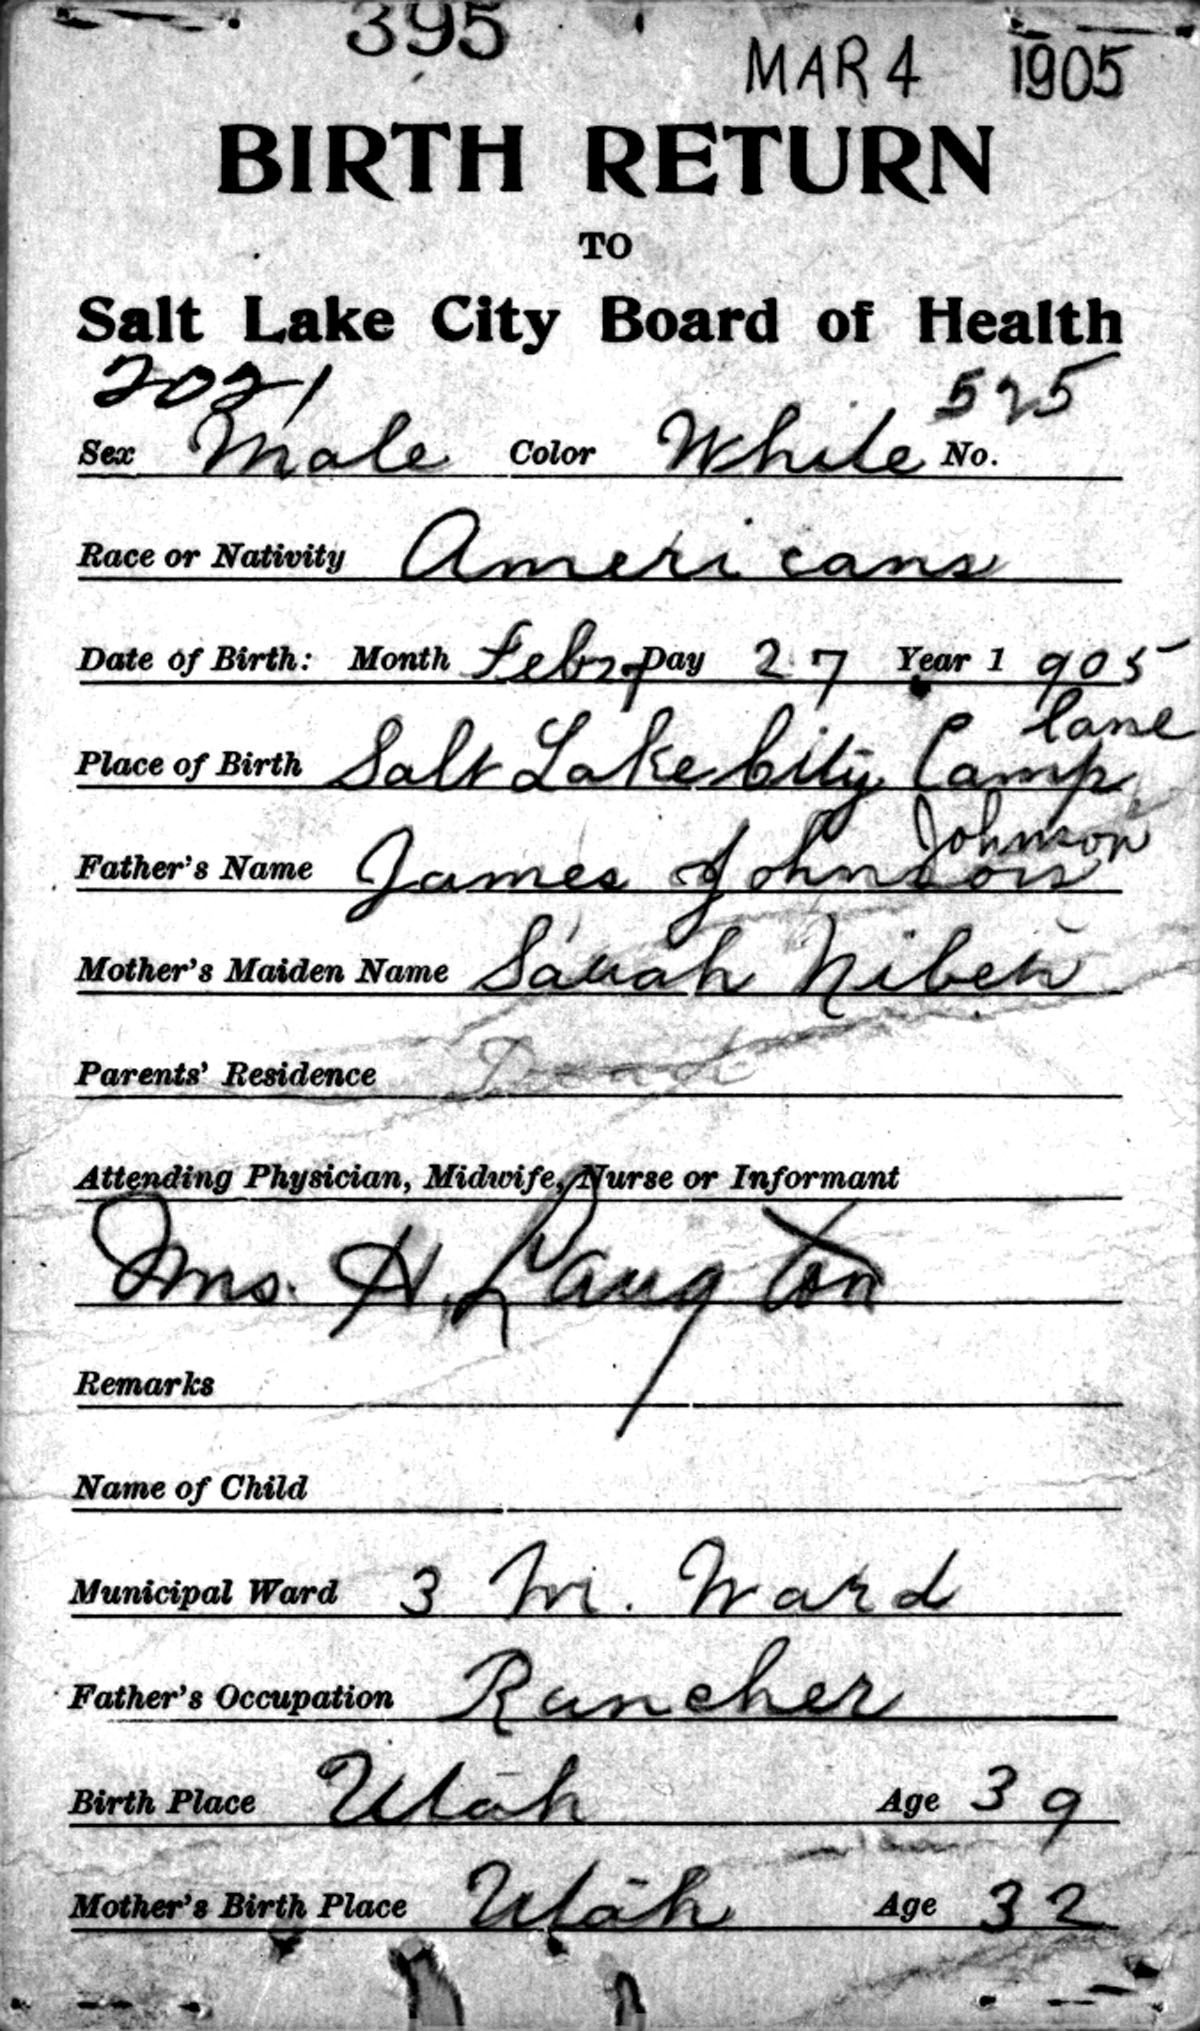 395
MAR 4 1905
BIRTH RETURN
TO
Salt Lake City Board of Health
2021 525
Sex Male Color White No.
Race or Nativity Americans
Date of Birth: Month Febry Day 27 Year 1 905
lane
Place of Birth Salt Lake City Camp
Johnson
Father's Name James Johnson
Mother's Maiden Name Sarah Niben
Parents' Residence
Attending Physician, Midwife, Nurse or Informant
Mrs. H. Laugton
Remarks
Name of Child
Municipal Ward 3 M. Ward
Father's Occupation Rancher
Birth Place Utah Age 39
Mother's Birth Place Utah Age 32